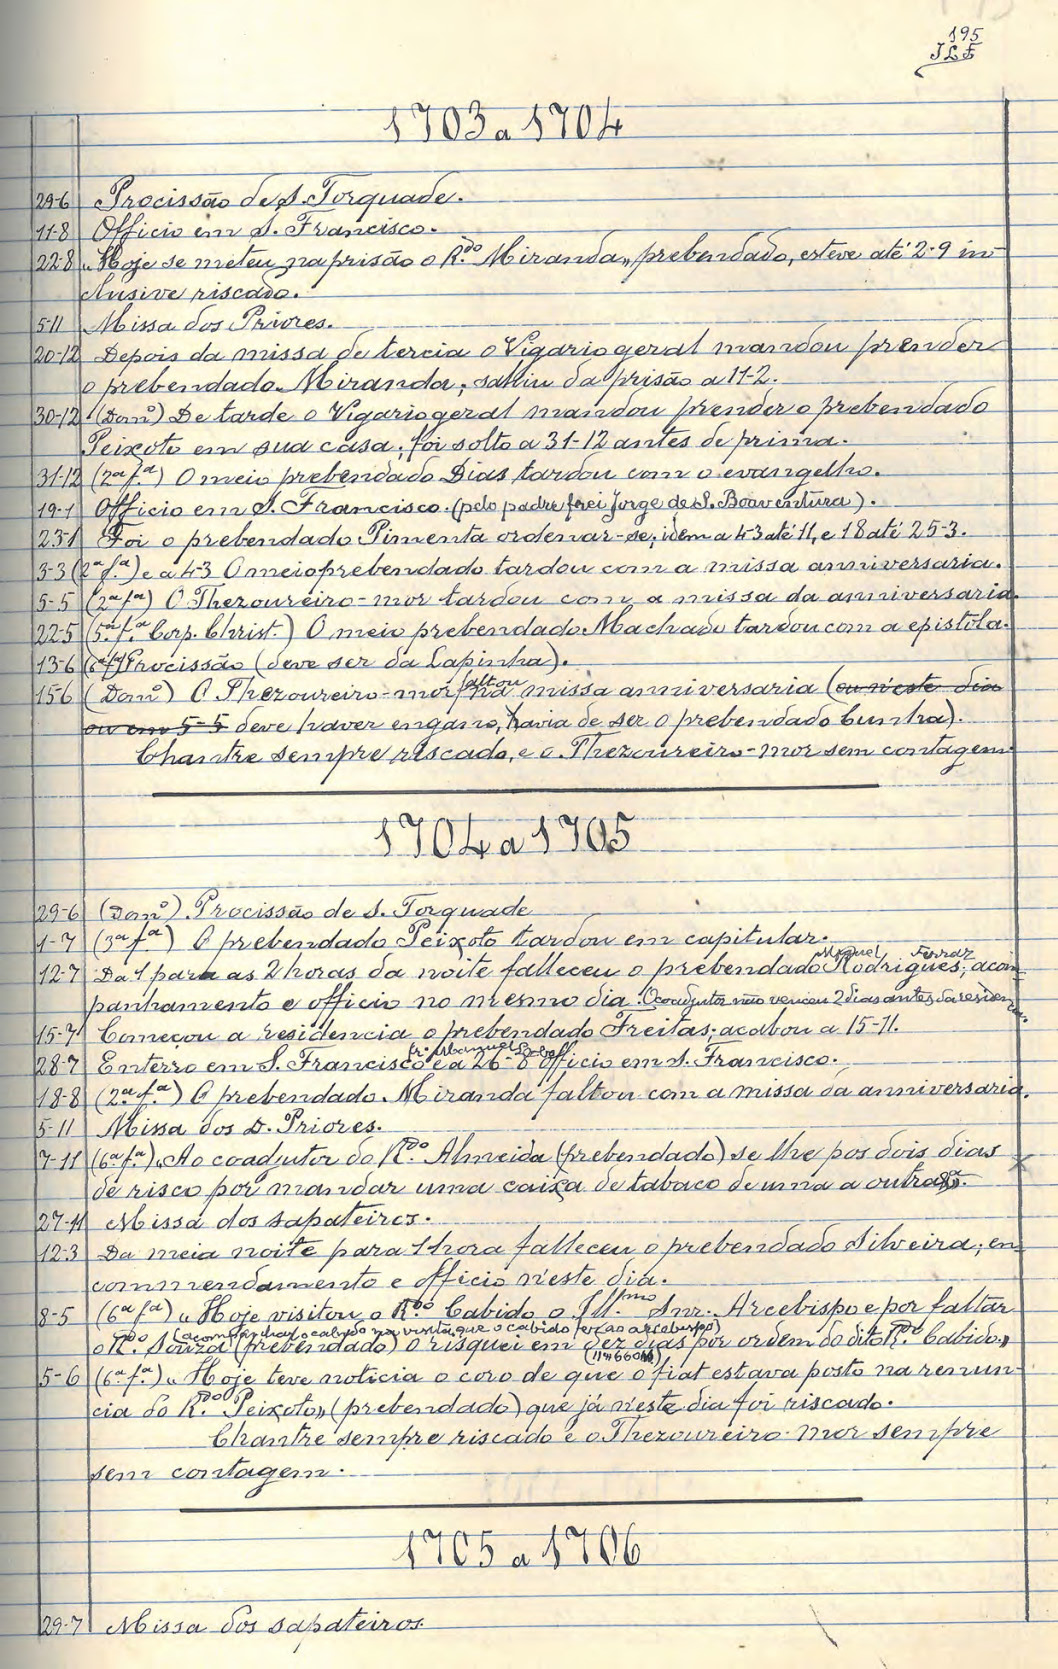 195
1703 a 1704
29-6 Procissão de S. Torquade.
11-8 Officio em S. Francisco.
22-8 "Hoje se meteu na prisão o R.do Miranda" prebendado, esteve até 2-9 in-
clusive riscado.
5-11 Missa dos Priores.
20-12 Depois da missa de tercia o Vigario geral mandou prender
o prebendado Miranda; sahiu da prisão a 11-2.
30-12 (Dom.º) De tarde o Vigario geral mandou prender o prebendado
Peixoto em sua casa; foi solto a 31-12 antes de prima.
31-12 (2ª f.ª) O meio prebendado Dias tardou com o evangelho.
19-1 Officio em S. Francisco. (pelo padre frei Jorge de S. Boaventura).
23-1 Foi o prebendado Pimenta ordenar-se; idem a 4-3 até 11, e 18 até 25-3.
3-3 (2ª f.ª) e a 4-3 O meio prebendado tardou com a missa anniversaria.
5-5 (2ª f.ª) O Thezoureiro-mor tardou com a missa da anniversaria.
22-5 (5ª f.ª Corp. Christ.) O meio prebendado Machado tardou com a epistola.
13-6 (6ª f.ª) Procissão (deve ser da Lapinha).
15-6 (Dom.º) O Thezoureiro-mor faltou na missa anniversaria (ou n'este dia
ou em 5-5 deve haver engano, havia de ser o prebendado Cunha).
Chantre sempre riscado, e o Thezoureiro-mor sem contagem.
1704 a 1705
29-6 (Dom.º) Procissão de S. Torquade
1-7 (3ª f.ª) O prebendado Peixoto tardou em capitular.
12-7 Da 1 para as 2 horas da noite falleceu o prebendado Miguel Rodrigues Ferraz; acom-
panhamento e officio no mesmo dia. O coadjutor não venceu 2 dias antes da residen-
15-7 Começou a residencia o prebendado Freitas; acabou a 15-11.
28-7 Enterro em S. Francisco fr. Manuel e a 26-8 officio em S. Francisco.
18-8 (2ª f.ª) O prebendado Miranda faltou com a missa da anniversaria.
5-11 Missa dos D. Priores.
7-11 (6ª f.ª) "Ao coadjutor do R.do Almeida (prebendado) se lhe pos dois dias
de risco por mandar uma caixa de tabaco de uma a outra
27-11 Missa dos sapateiros.
12-3 Da meia noite para 1 hora falleceu o prebendado Silveira; en-
commendamento e officio n'este dia.
8-5 (6ª f.ª) "Hoje visitou o R.do Cabido o Ill.mo Snr. Arcebispo e por faltar
(acompanhar o cabido na visita que o cabido fez ao arcebispo)
o R.do Souza (prebendado) o risquei em dez dias por ordem do dito R.do Cabido"
5-6 (6ª f.ª) "Hoje teve noticia o coro de que o fiat estava posto na renun-
cia do R.do Peixoto" (prebendado) que já n'este dia foi riscado.
Chantre sempre riscado e o Thezoureiro-mor sempre
sem contagem.
1705 a 1706
29-7 Missa dos sapateiros.